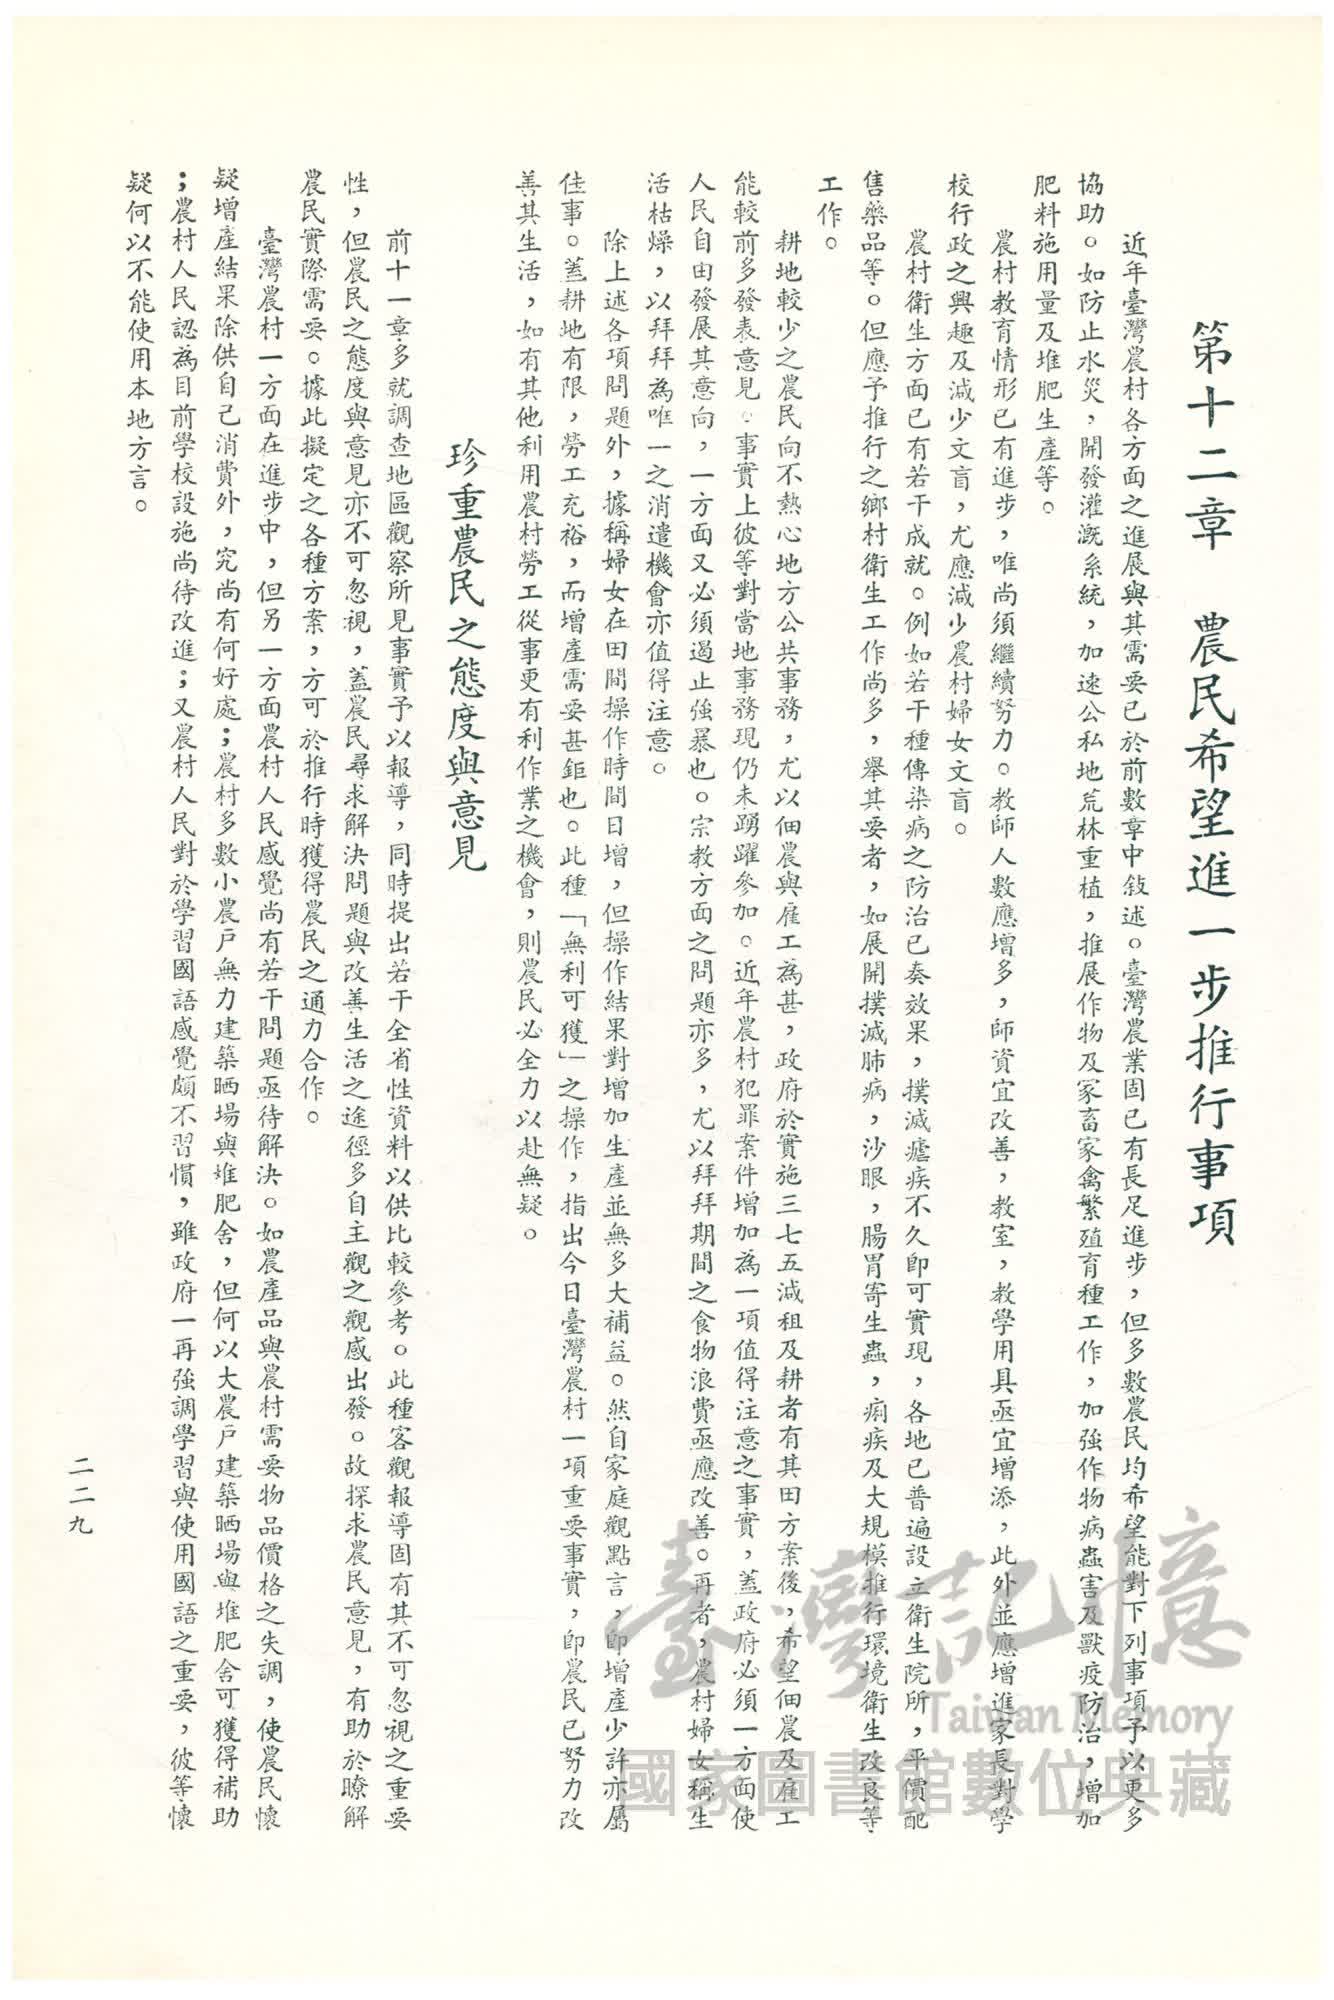 第十二章　農民希望進一步推行事項
近年臺灣農村各方面之進展與其需要已於前數章中敍述。臺灣農業固已有長足進步，但多數農民均希望能對下列事項予以更多
協助。如防止水災，開發灌溉系統，加速公私地荒林重植，推展作物及家畜家禽繁殖育種工作，加強作物病蟲害及獸疫防治，增加
肥料施用量及堆肥生產等。
農村教育情形已有進步，唯尚須繼續努力。教師人數應增多，師資宜改善，教室，教學用具亟宜增添，此外並應增進家長對學
校行政之興趣及減少文盲，尤應減少農村婦女文盲。
農村衛生方面已有若干成就。例如若干種傳染病之防治已奏效果，撲滅瘧疾不久卽可實現，各地已普遍設立衛生院所，平價配
售藥品等。但應予推行之鄉村衛生工作尚多，舉其要者，如展開撲滅肺病，沙眼，腸胃寄生蟲，痢疾及大規模推行環境衛生改良等
工作。
耕地較少之農民向不熱心地方公共事務，尤以佃農與雇工為甚，政府於實施三七五減租及耕者有其田方案後，希望佃農及雇工
能較前多發表意見。事實上彼等對當地事務現仍未踴躍參加。近年農村犯罪案件增加為一項值得注意之事實，蓋政府必須一方面使
人民自由發展其意向，一方面又必須遏止強暴也。宗教方面之問題亦多，尤以拜拜期間之食物浪費亟應改善。再者，農村婦女稱生
活枯燥，以拜拜為唯一之消遣機會亦值得注意。
除上述各項問題外，據稱婦女在田間操作時間日增，但操作結果對增加生產並無多大補益。然自家庭觀點言，卽增產少許亦屬
佳事。蓋耕地有限，勞工充裕，而增產需要甚鉅也。此種「無利可獲」之操作，指出今日臺灣農村一項重要事實，卽農民已努力改
善其生活，如有其他利用農村勞工從事更有利作業之機會，則農民必全力以赴無疑。
珍重農民之態度與意見
前十一章多就調查地區觀察所見事實予以報導，同時提出若干全省性資料以供比較參考。此種客觀報導固有其不可忽視之重要
性，但農民之態度與意見亦不可忽視，蓋農民尋求解決問題與改善生活之途徑多自主觀之觀感出發。故探求農民意見，有助於瞭解
農民實際需要。據此擬定之各種方案，方可於推行時獲得農民之通力合作。
臺灣農村一方面在進步中，但另一方面農村人民感覺尚有若干問題亟待解決。如農產品與農村需要物品價格之失調，使農民懷
疑增產結果除供自己消費外，究尚有何好處；農村多數小農戶無力建築晒場與堆肥舍，但何以大農戶建築晒場與堆肥舍可獲得補助
；農村人民認為目前學校設施尚待改進；又農村人民對於學習國語感覺頗不習慣，雖政府一再強調學習與使用國語之重要，彼等懷
疑何以不能使用本地方言。
二二九
臺灣記憶
Taiwan Memory
國家圖書館數位典藏